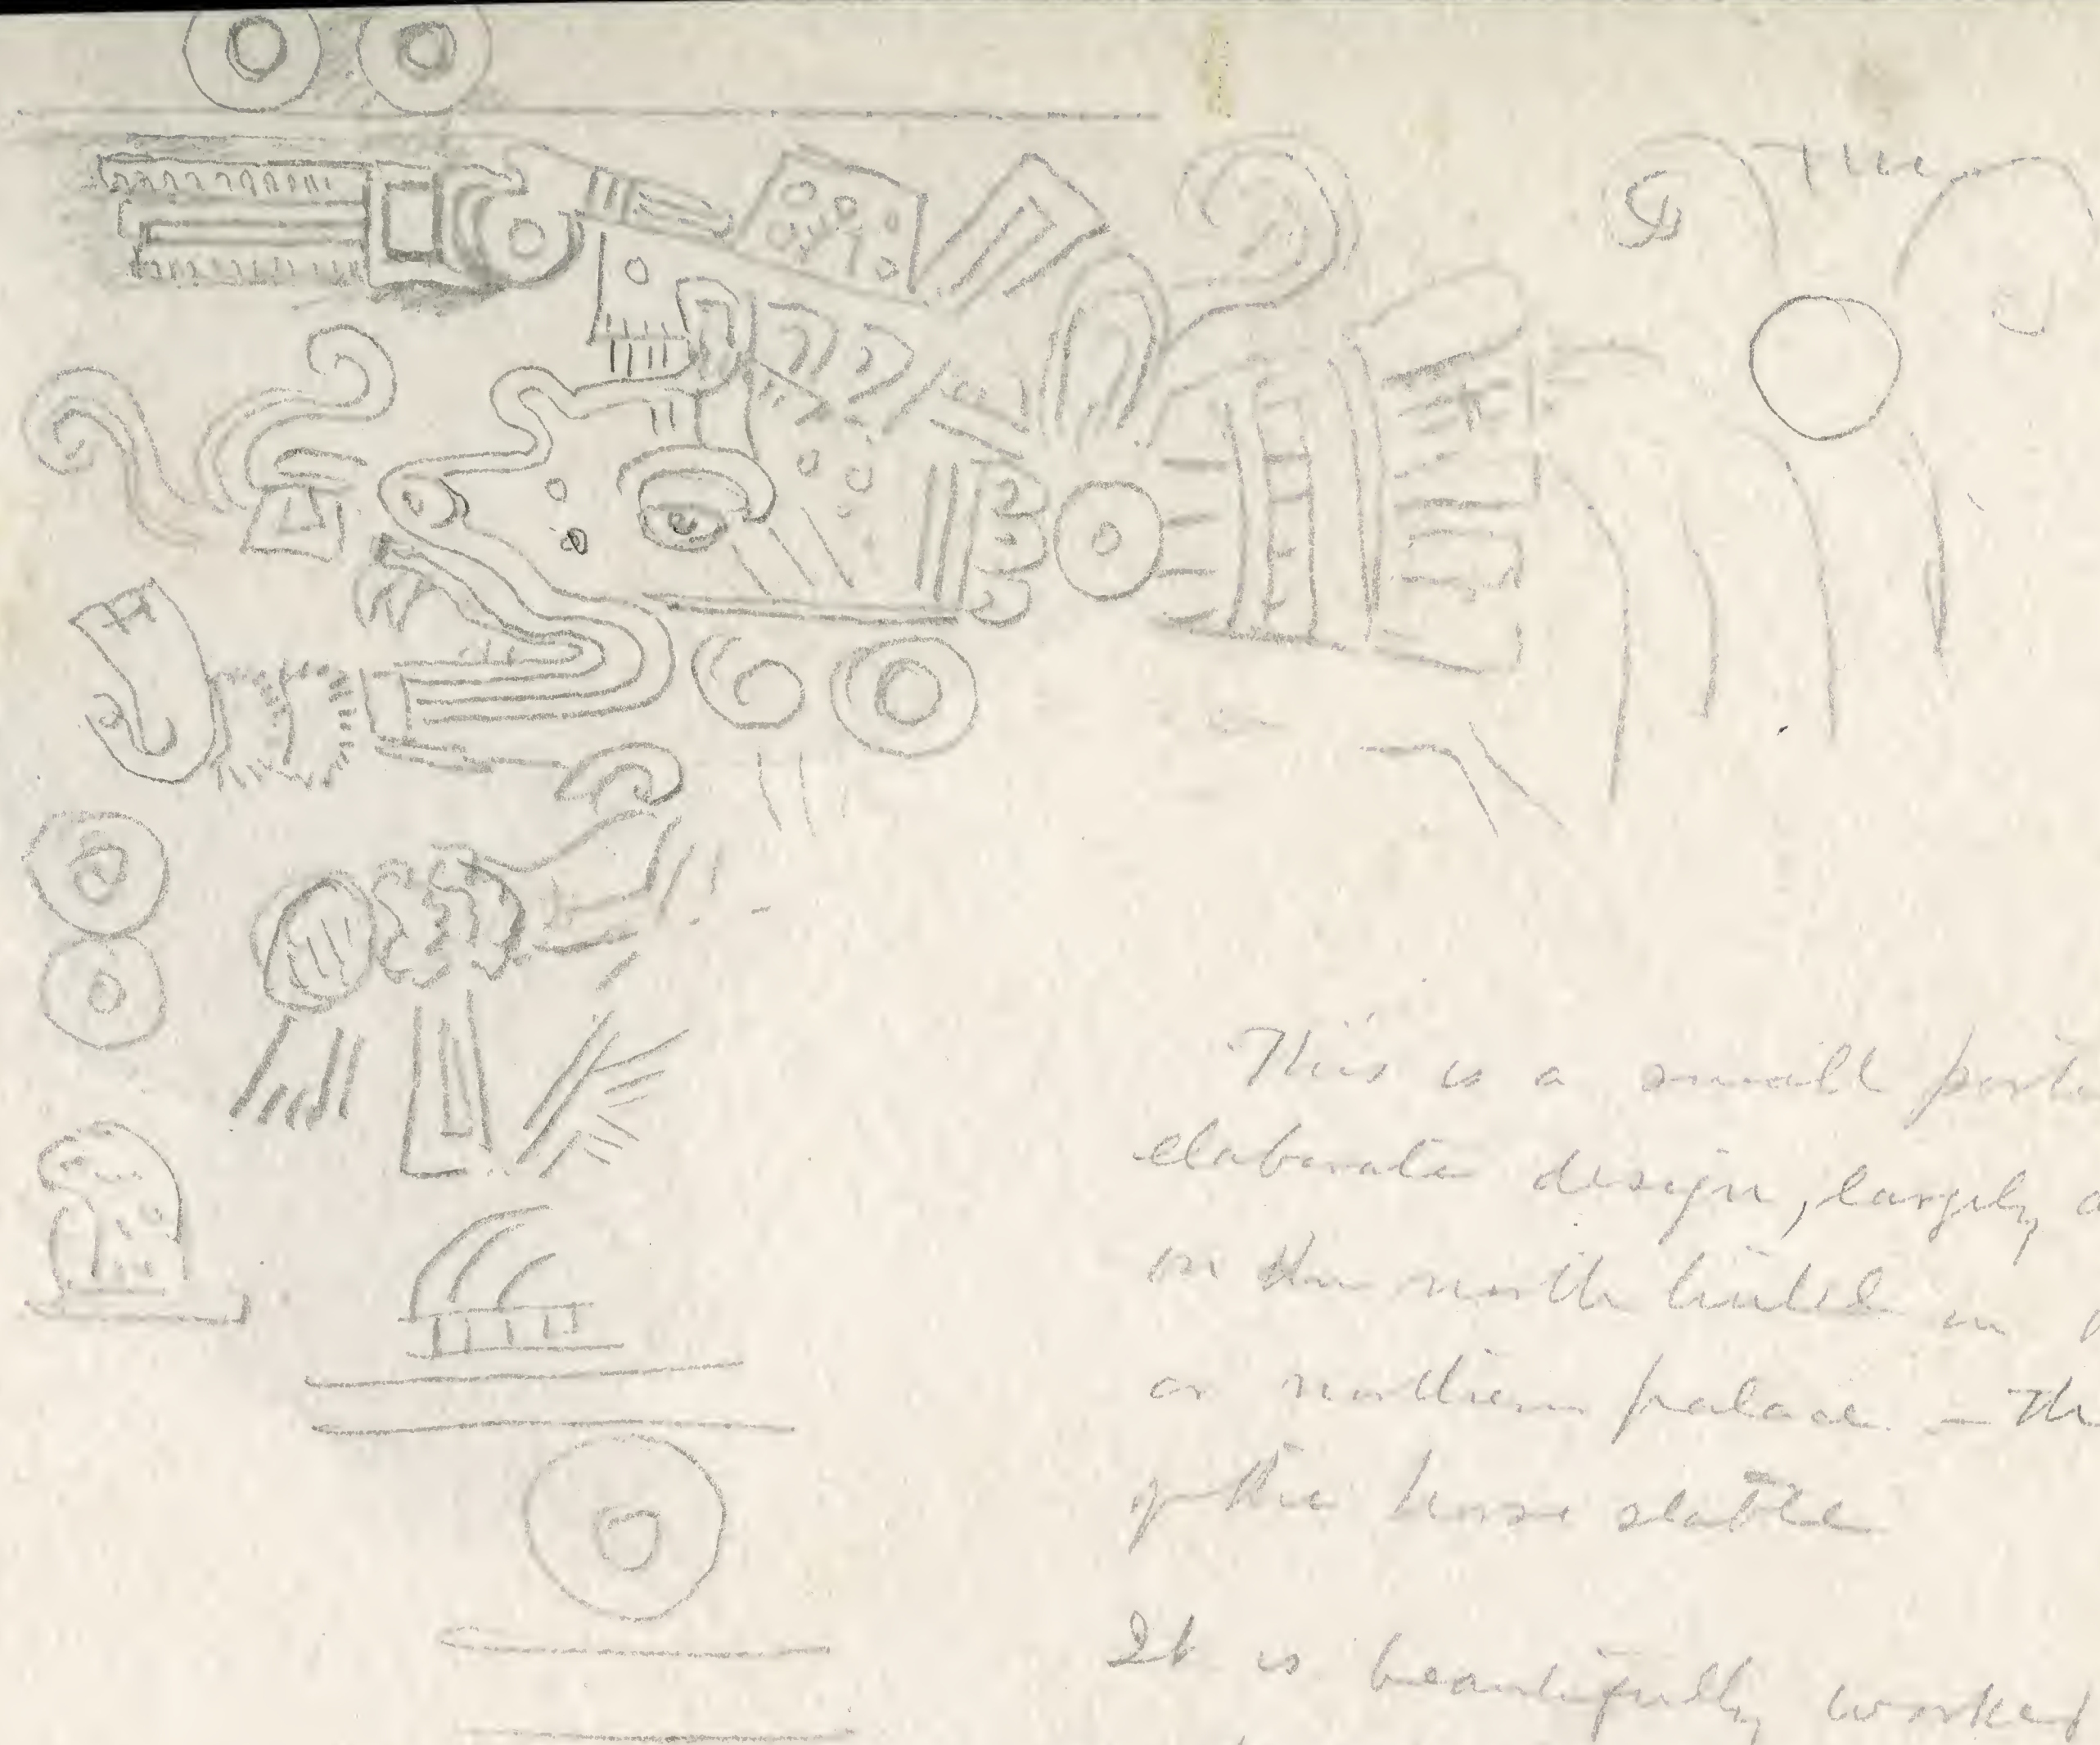 This is a small porti
elaborate design, largely a
on the north lintel in
or northern palace – Th
of the horse stable
It is beautifully worked